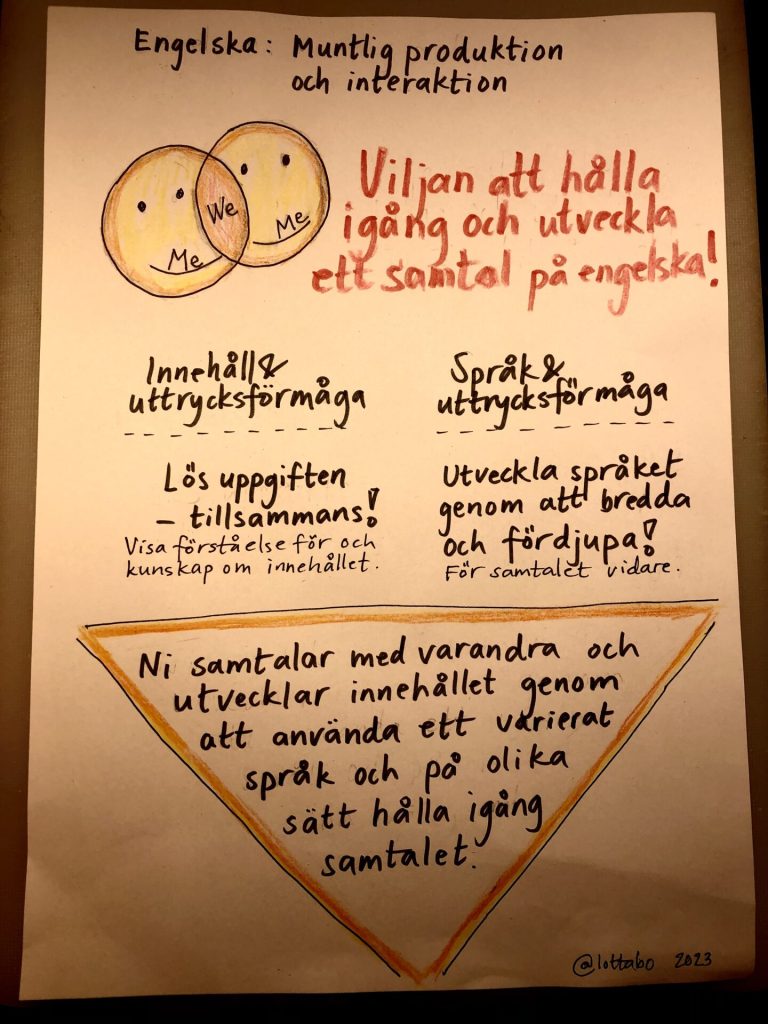 Engelska: Muntlig produktion
och interaktion
We
Me
Me
Viljan att hålla
igång och utveckla
ett samtal på engelska!
Innehåll &
uttrycksförmåga
Lös uppgiften
– tillsammans!
Visa förståelse för och
kunskap om innehållet.
Språk &
uttrycksförmåga
Utveckla språket
genom att bredda
och fördjupa!
För samtalet vidare.
Ni samtalar med varandra och
utvecklar innehållet genom
att använda ett varierat
språk och på olika
sätt hålla igång
samtalet.
@lottabo 2023